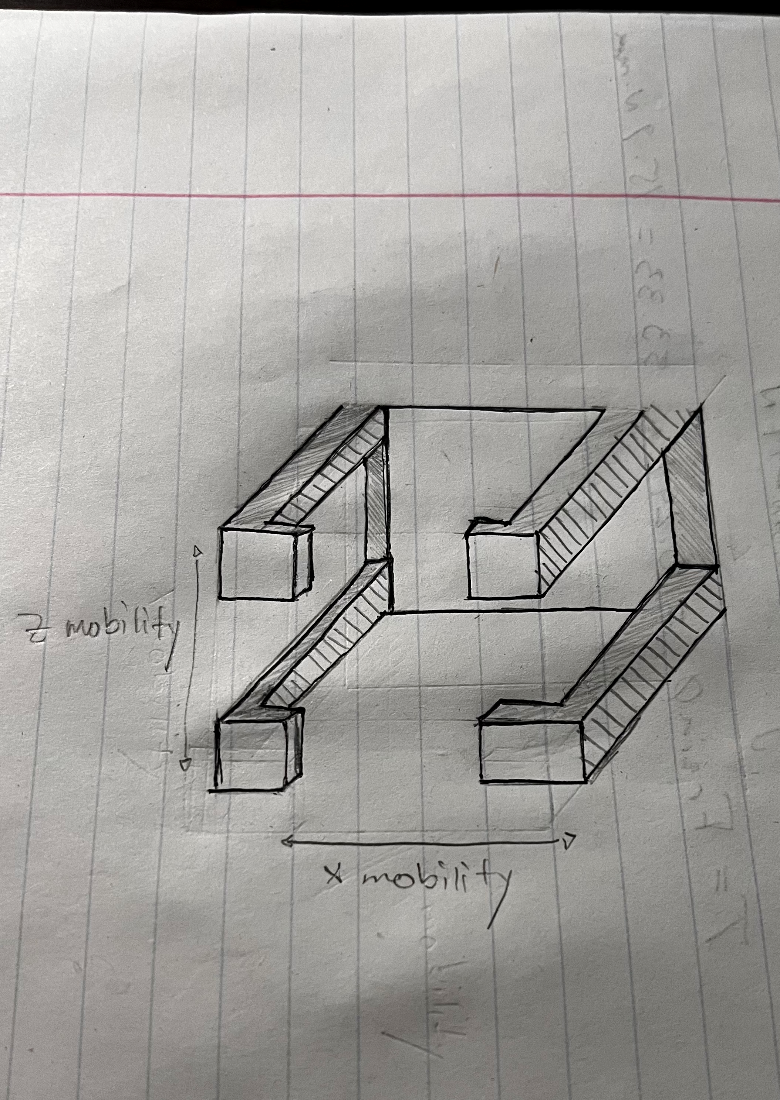 z mobility
x mobility